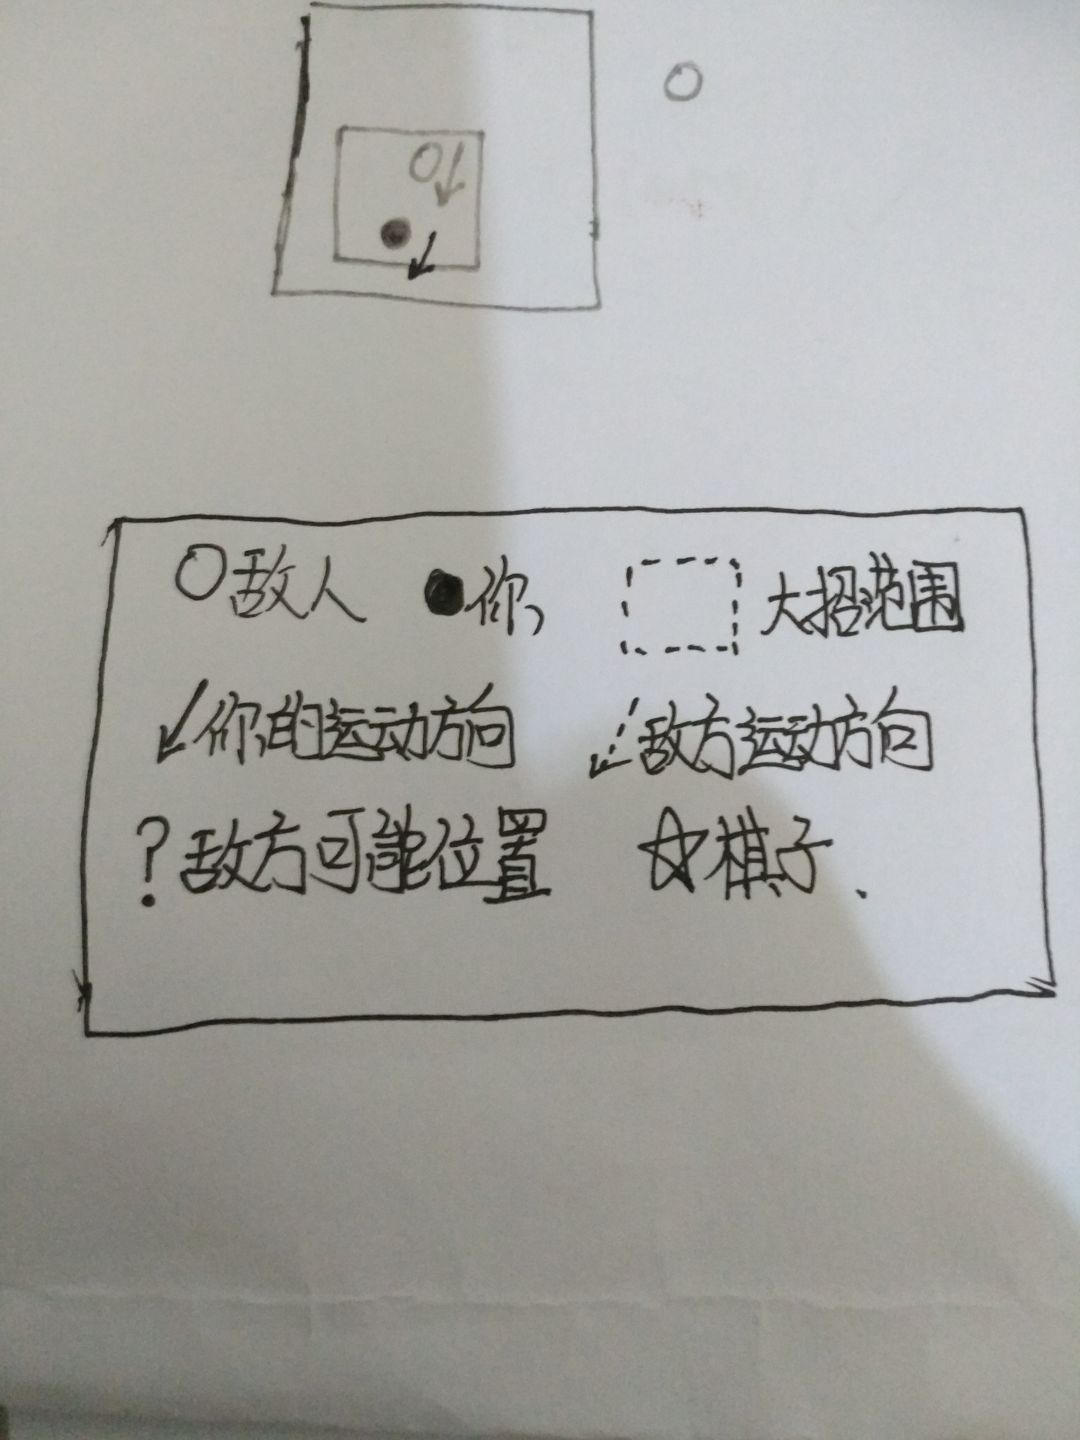 敌人 你 大招范围
你的运动方向 敌方运动方向
?敌方可能位置 棋子、